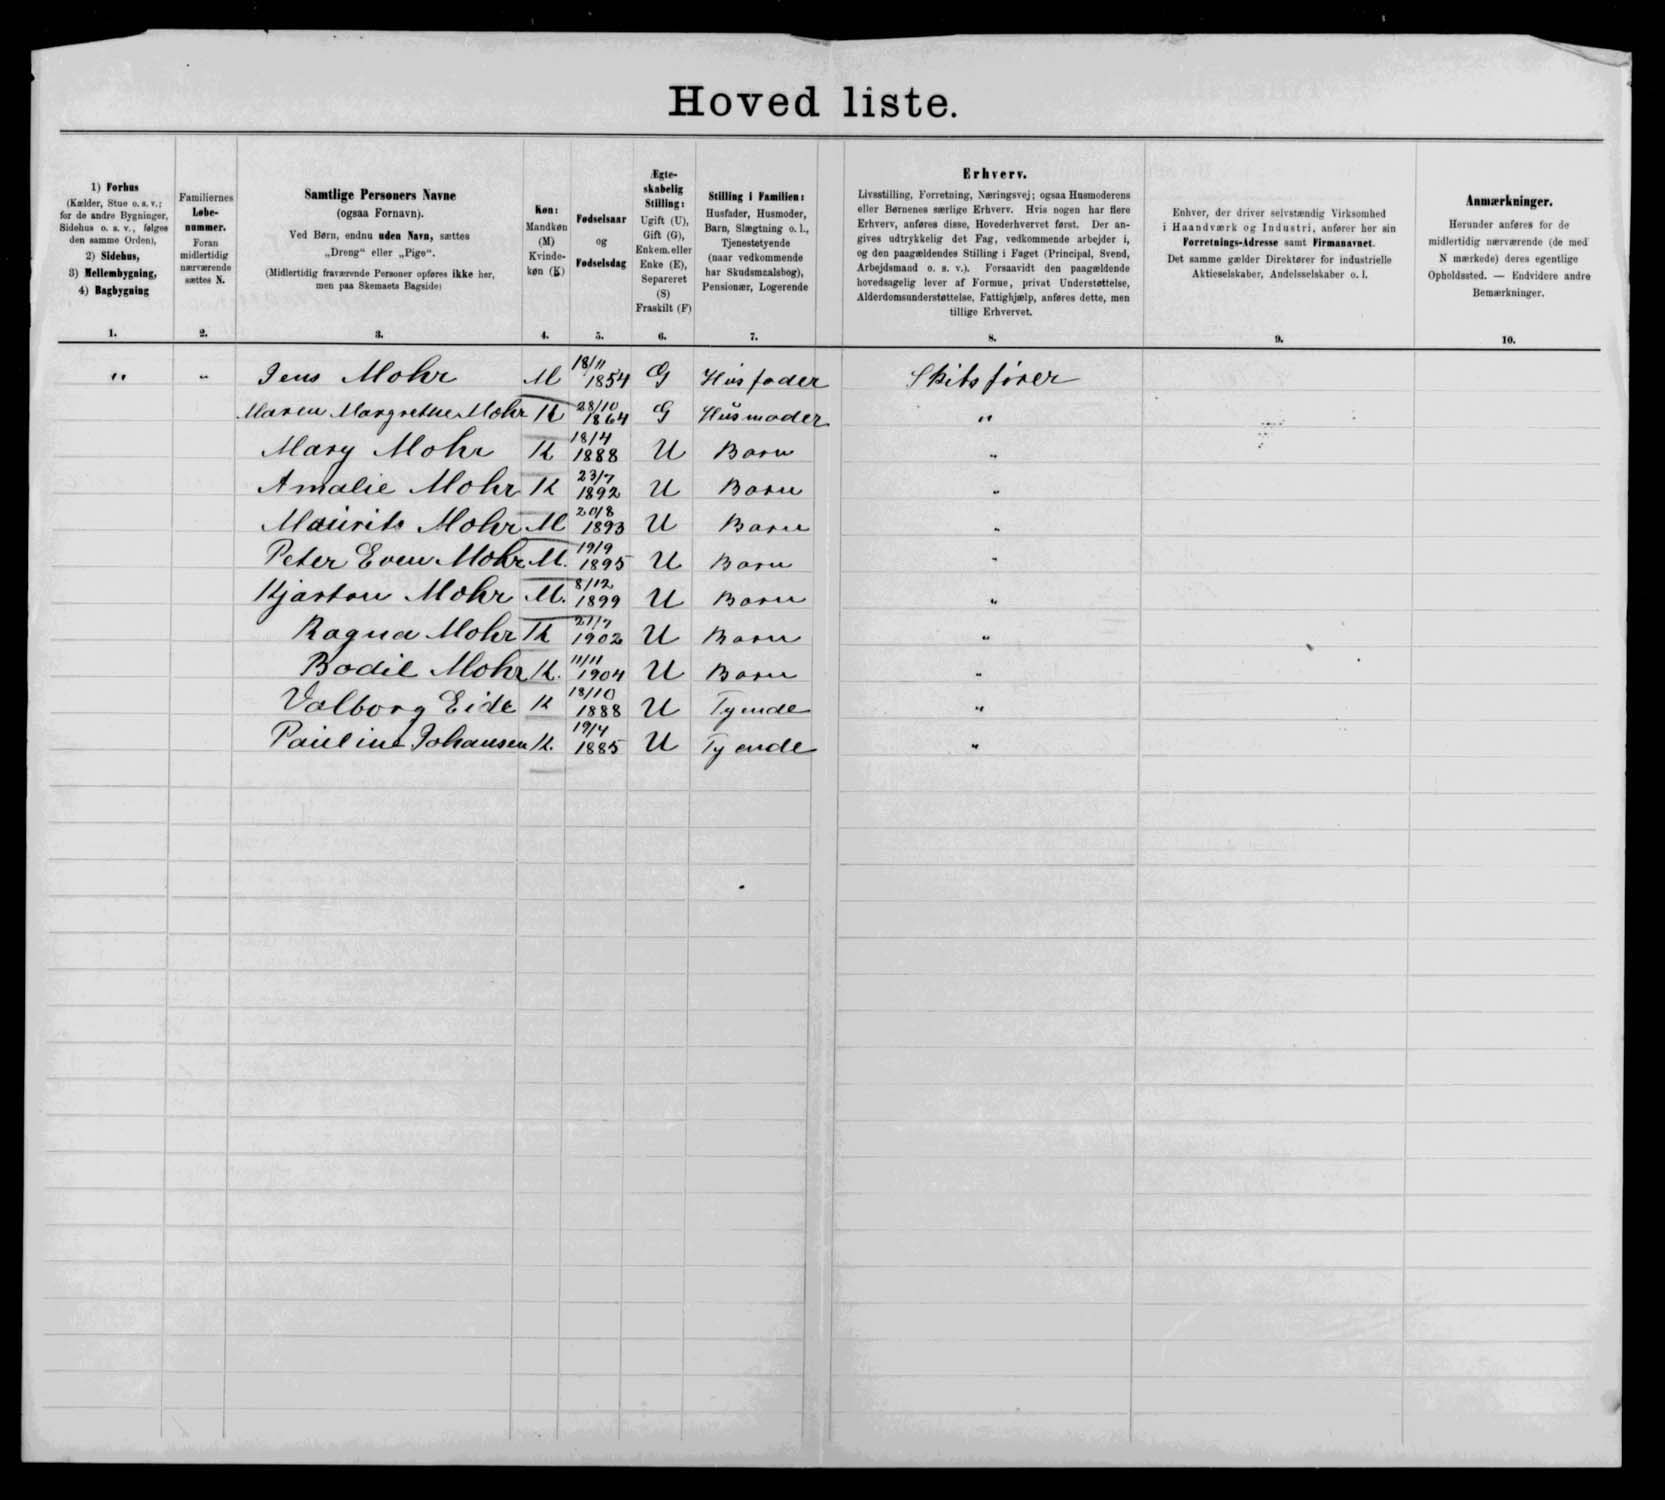 Hoved liste.
1) Forhus
(Kælder, Stue o. s. v.;
for de andre Bygninger,
Sidehus o. s. v., følges
den samme Orden),
2) Sidehus,
3) Mellembygning,
4) Bagbygning
1.
Familiernes
Løbe-
nummer.
Foran
midlertidig
nærværende
sættes N.
2.
Samtlige Personers Navne
(ogsaa Fornavn).
Ved Børn, endnu uden Navn, sættes
„Dreng“ eller „Pige“.
(Midlertidig fraværende Personer opføres ikke her,
men paa Skemaets Bagside)
3.
Køn:
Mandkøn
(M)
Kvinde-
køn (K)
4.
Fødselsaar
og
Fødselsdag
5.
Ægte-
skabelig
Stilling:
Ugift (U),
Gift (G),
Enkem. eller
Enke (E),
Separeret
(S)
Fraskilt (F)
6.
Stilling i Familien:
Husfader, Husmoder,
Barn, Slægtning o. l.,
Tjenestetyende
(naar vedkommende
har Skudsmaalsbog),
Pensionær, Logerende
7.
Erhverv.
Livsstilling, Forretning, Næringsvej; ogsaa Husmoderens
eller Børnenes særlige Erhverv. Hvis nogen har flere
Erhverv, anføres disse, Hovederhvervet først. Der an-
gives udtrykkelig det Fag, vedkommende arbejder i,
og den paagældendes Stilling i Faget (Principal, Svend,
Arbejdsmand o. s. v.). Forsaavidt den paagældende
hovedsagelig lever af Formue, privat Understøttelse,
Alderdomsunderstøttelse, Fattighjælp, anføres dette, men
tillige Erhvervet.
8.
Enhver, der driver selvstændig Virksomhed
i Haandværk og Industri, anfører her sin
Forretnings-Adresse samt Firmanavnet.
Det samme gælder Direktører for industrielle
Aktieselskaber, Andelsselskaber o. l.
9.
Anmærkninger.
Herunder anføres for de
midlertidig nærværende (de med
N mærkede) deres egentlige
Opholdssted. — Endvidere andre
Bemærkninger.
10.
" " Jens Mohr M 18/11 1854 G Husfader Skibsfører
Maren Margrethe Mohr K 28/10 1864 G Husmoder "
Mary Mohr K 18/4 1888 U Barn "
Amalie Mohr K 23/7 1892 U Barn "
Maurits Mohr M 20/8 1893 U Barn "
Peter Even Mohr M. 19/9 1895 U Barn "
Kjartan Mohr M. 8/12 1899 U Barn "
Ragna Mohr K 21/7 1902 U Barn "
Bodil Mohr K. 11/11 1904 U Barn "
Valborg Eide K 18/10 1888 U Tyende "
Pauline Johansen K. 19/4 1885 U Tyende "